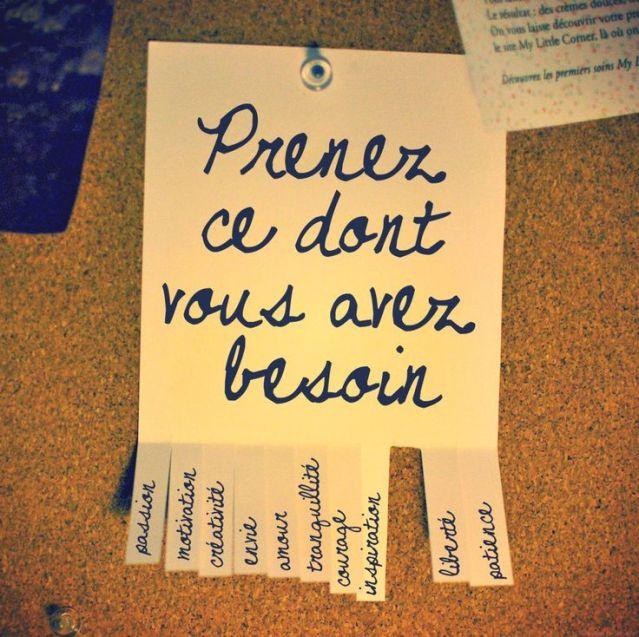 Le résultat : des crèmes douces,
On vous laisse découvrir votre
le site My Little Corner, là où on
Découvrez les premiers soins My
Prenez
ce dont
vous avez
besoin
passion
motivation
créativité
envie
amour
tranquillité
courage
inspiration
liberté
patience